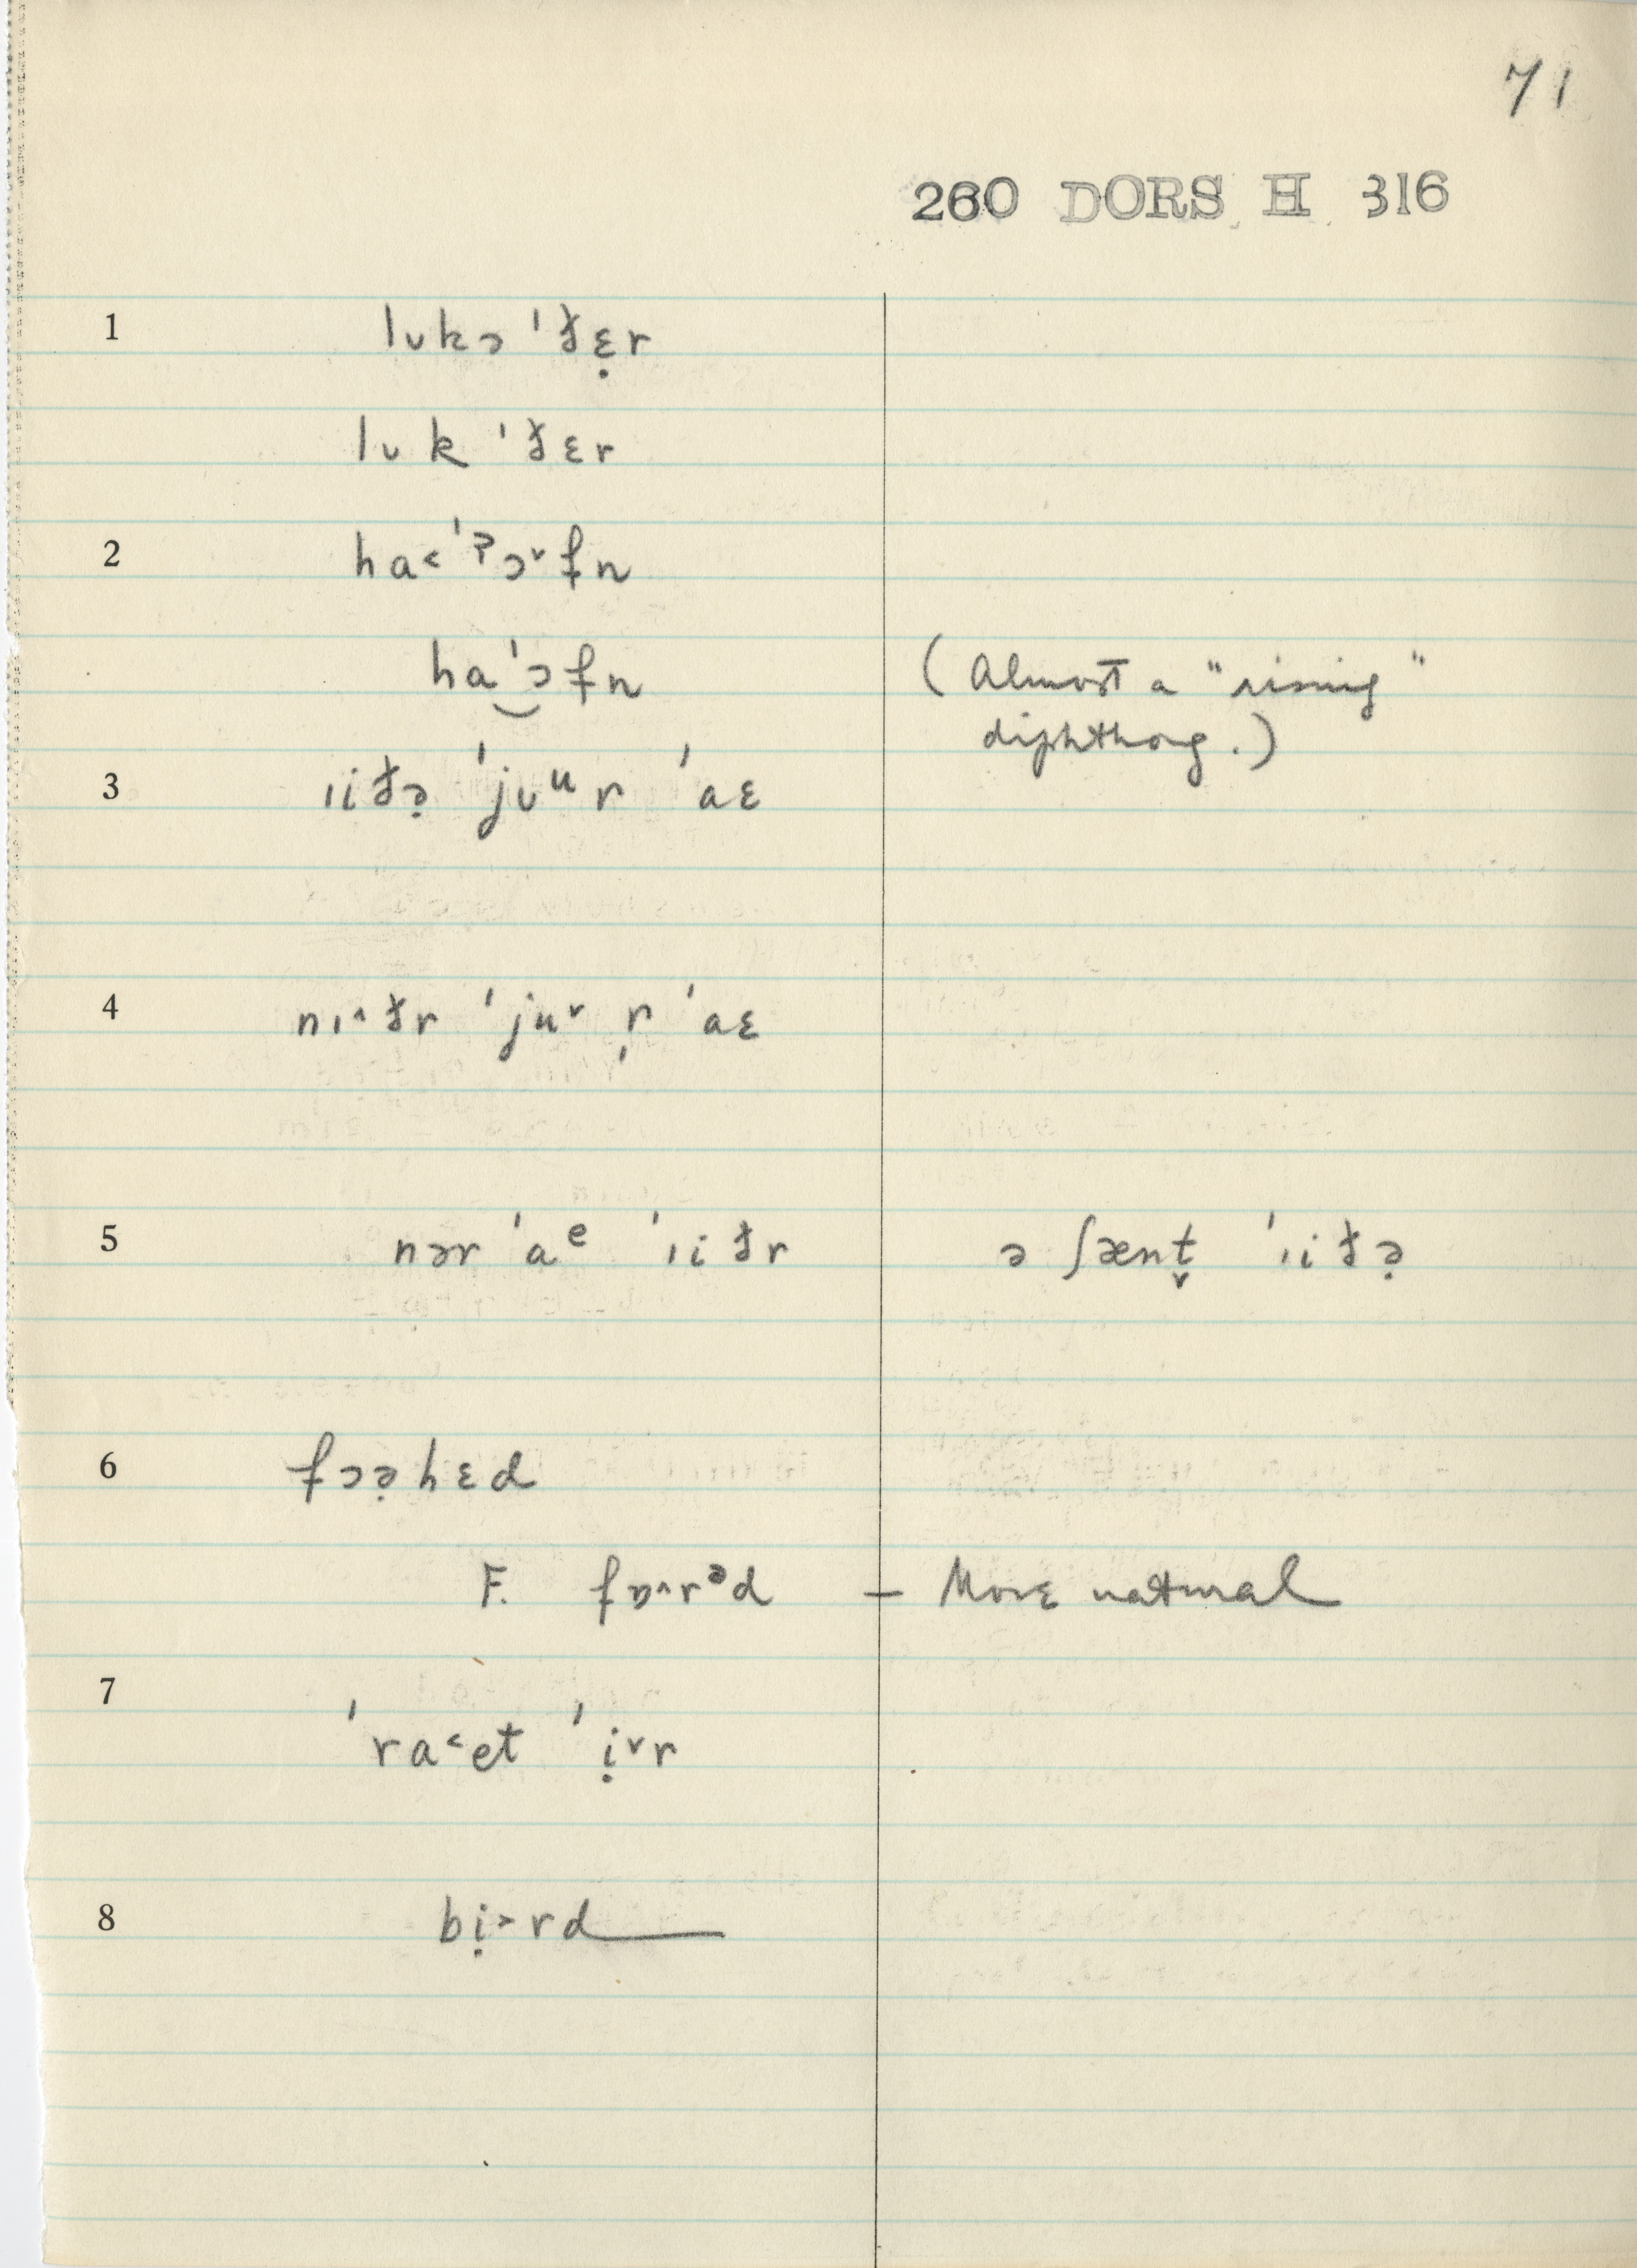 71
260 DORS H 316
1 lʊkə 'ðɛ̣r
lʊk 'ðɛr
2 ha˂'ʔɔ˅fn
ha'‿ɔfn (Almost a "rising"
diphthong.)
3 ɪiðə̣ 'jʊᵘr 'aɛ
4 nɪ˄ðr 'ju˅ r̩ 'aɛ
5 nər 'aᵉ 'ɪiðr ə ʃænt̬ 'ɪiðə̣
6 fɔə̣hɛd
F. fɒ˄rᵊd — More natural
7 'ra˂et 'ị˅r
8 bị˃rd